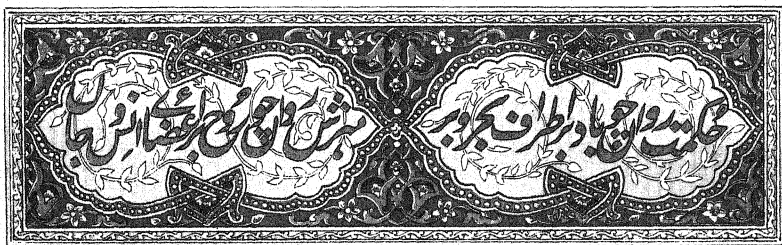 حکمت روان چو باد بر اطراف بحر و بر
مهرش روان چو روح بر اعضای انس و جان